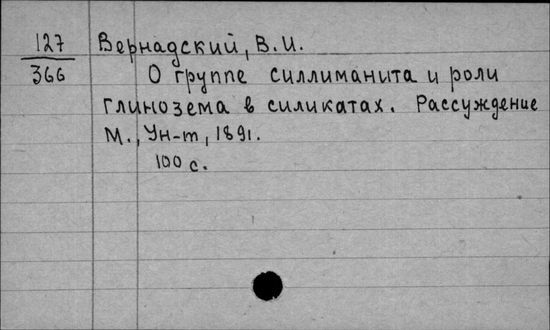 127
366
Вернадский, В.И.
О группе силлиманита и роли
глинозема в силикатах. Рассуждение
М., Ун-т, 1891.
100 с.